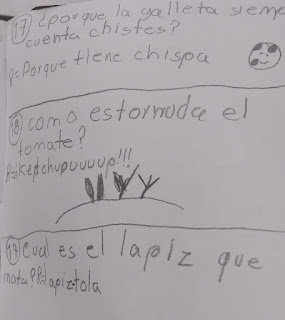 17) ¿porque la galleta siempre
cuenta chistes?
R=Porque tiene chispa
18) como estornuda el
tomate?
R=¡ketchupuuuup!!!
19) Cual es el lapiz que
mata? R=lapiztola